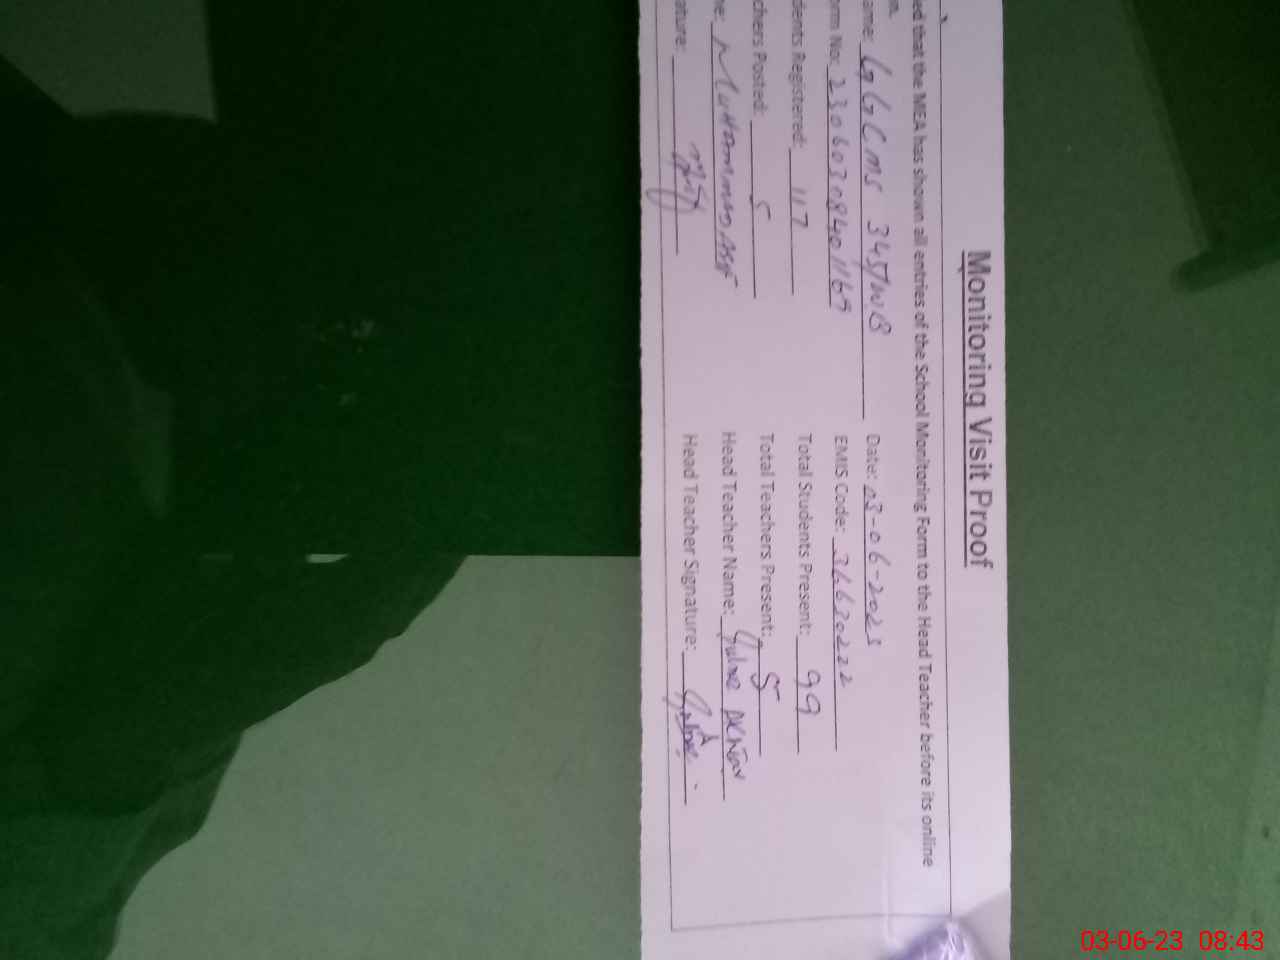 Monitoring Visit Proof
ed that the MEA has shown all entries of the School Monitoring Form to the Head Teacher before its online
on.
ame: GGCMS 345/WB Date: 03-06-2023
orm No: 23060308401169 EMIS Code: 36630222
dents Registered: 117 Total Students Present: 99
chers Posted: 5 Total Teachers Present: 5
ne: Muhammad Asif Head Teacher Name: Akhtar
ature: Head Teacher Signature:
03-06-23 08:43